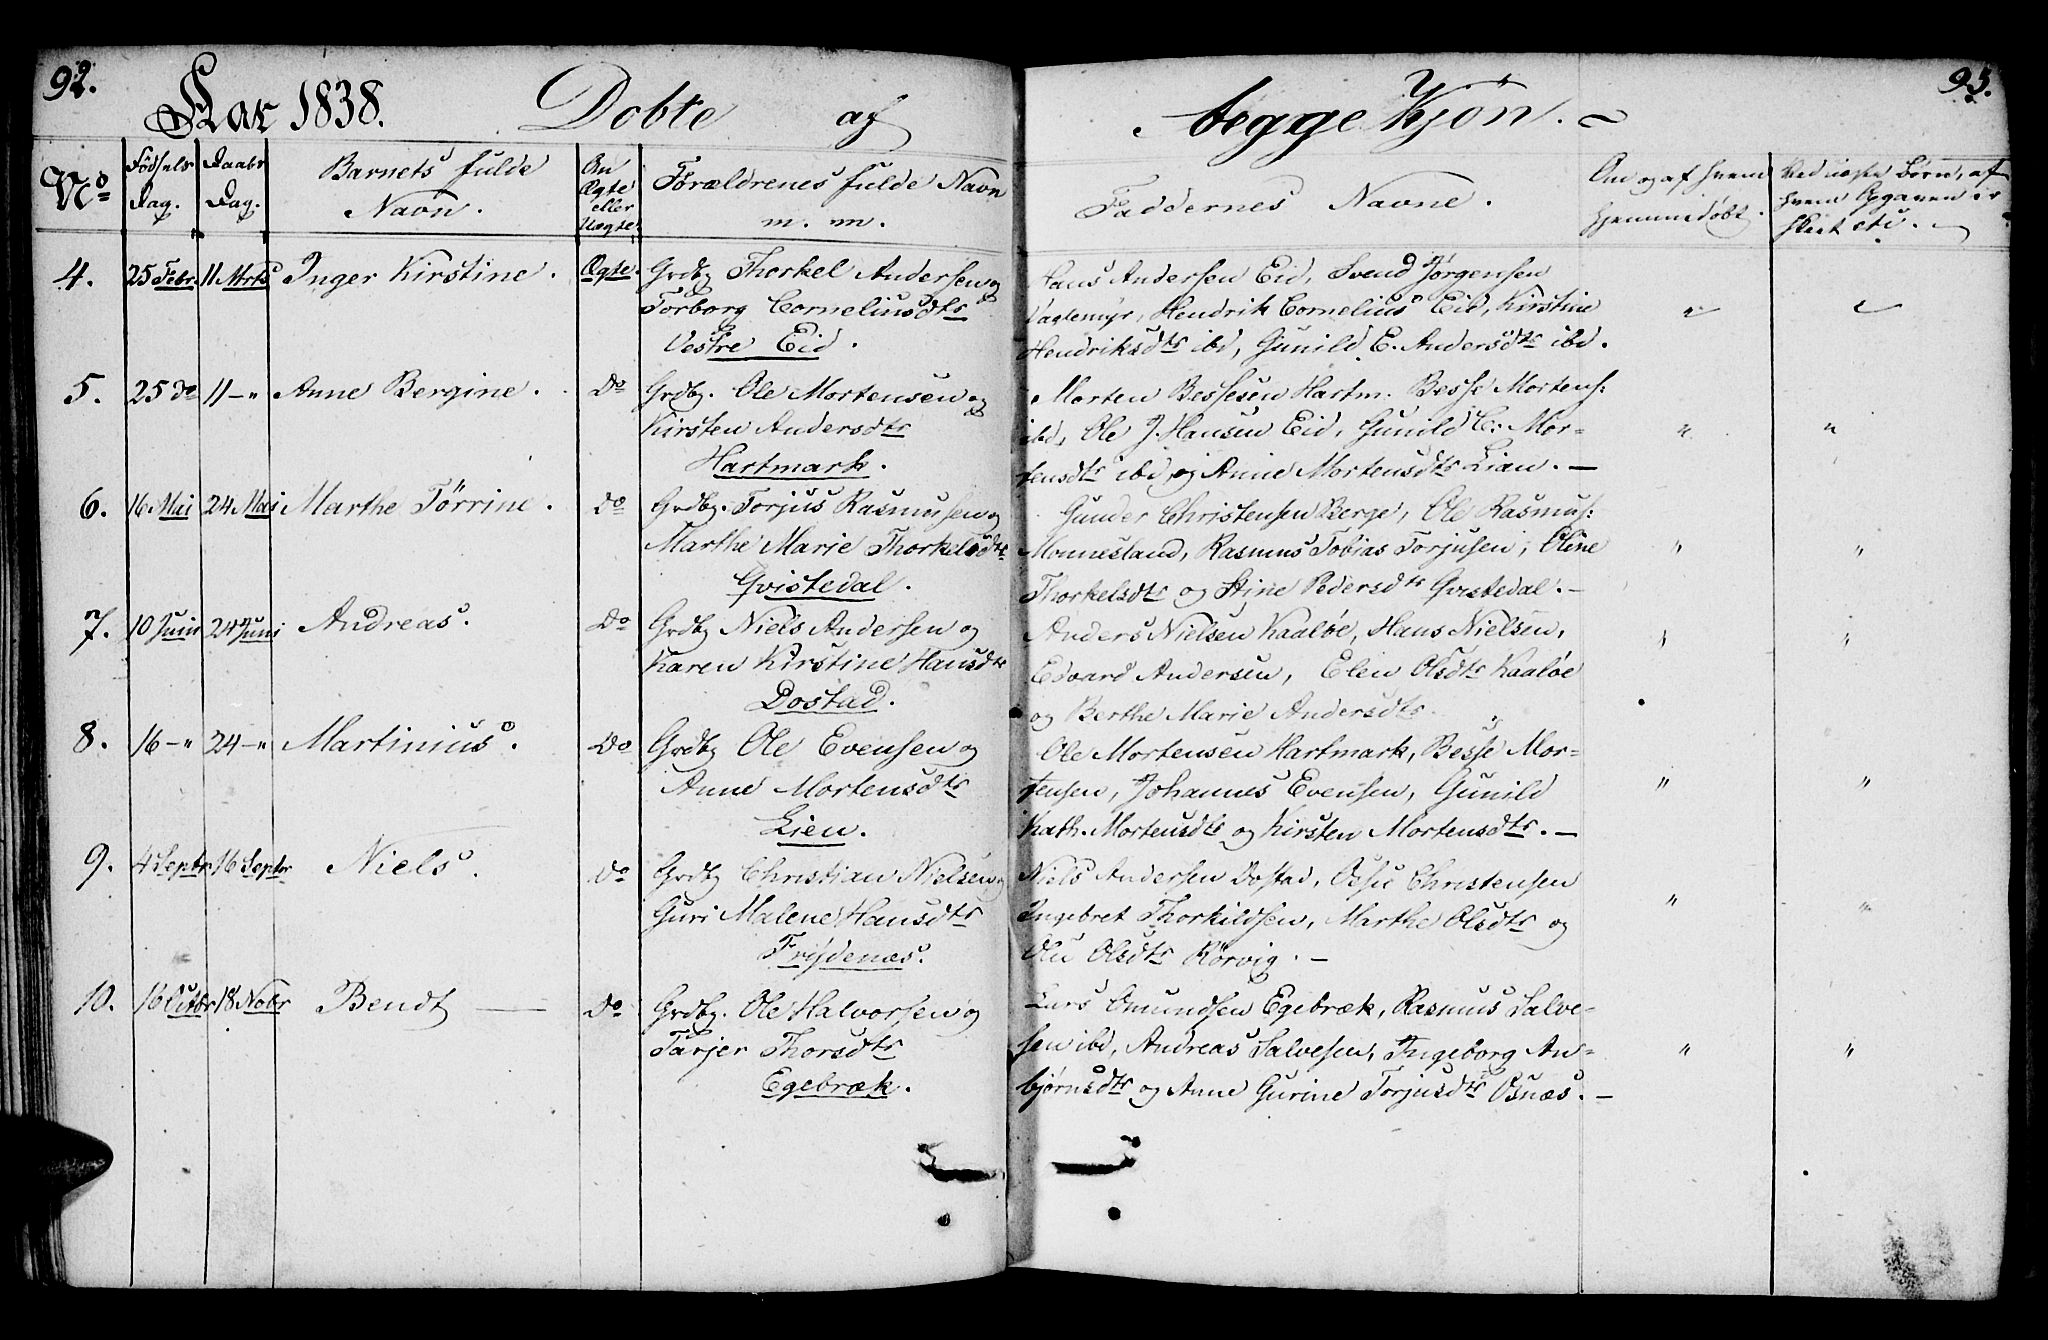 92.
Aar 1838. Døbte af
No Fødsels Dag. Daabs Dag. Barnets fulde Navn. Om Ægte eller Uægte. Forældrenes fulde Navn m. m.
4. 25 Febr. 11 Mrts Inger Kirstine. Ægte. Grdbg Thorkel Andersen og
Torborg Corneliusdtr
Vestre Eid.
5. 25 do 11 -" Anne Bergine. do Grdbg. Ole Mortensen og
Kirsten Andersdtr
Hartmark.
6. 16 Mai 24 Mai Marthe Tørrine. do Grdbg. Torjus Rasmussen og
Marthe Marie Thorkelsdtr
Qvistedal.
7. 10 Juni 24 Juni Andreas. Do Grdbg Niels Andersen og
Karen Kirstine Hansdtr
Dostad.
8. 16 -" 24 -" Martinius. Do Grdbg Ole Evensen og
Anne Mortensdtr
Lien.
9. 4 Septr 16 Septr Niels. do Grdbg Christian Nielsen og
Guri Malene Hansdtr
Frydenæs.
10. 16 Octbr 18 Nobr Bendt — do Grdbg. Ole Halvorsen og
Tarjer Thorsdtr
Egebræk.
93.
begge Kjøn.
Faddernes Navne. Om og af hvem hjemmedøbt. Ved uægte Børn, af hvem Opgaven er skeet etc.
Hans Andersen Eid, Svend Jørgensen
Vagtemyr, Hendrik Cornelius Eid, Kirstine " "
Hendriksdtr ibd, Gunild E. Andersdtr ibd.
Morten Bessesen Hartm. Besse Mortens:
ibd, Ole J. Hansen Eid, Gunild C. Mor- " "
tensdtr ibd, og Anne Mortensdtr Lian. —
Gunder Christensen Berge, Ole Rasmus:
Monnesland, Rasmus Tobias Torjusen, Oline " "
Thorkelsdtr og Stine Pedersdtr Qvistedal. —
Anders Nielsen Kaaløe, Hans Nielsen, " "
Edvard Andersen, Elen Olsdtr Kaaløe
og Berthe Marie Andersdtr.
Ole Mortensen Hartmark, Besse Mor-
tensen, Johannes Evensen, Gunild " "
Kath. Mortensdtr og Kirsten Mortensdtr. —
Niels Andersen Dostad, Christensen
Ingebret Thorkildsen, Marthe Olsdtr og " "
Olsdtr Rørvig. —
Lars Omundsen Egebræk, Rasmus Salve-
sen ibd, Andreas Salvesen, Ingeborg An- " "
bjørnsdtr og Anne Gurine Torjusdtr Osnæs. —